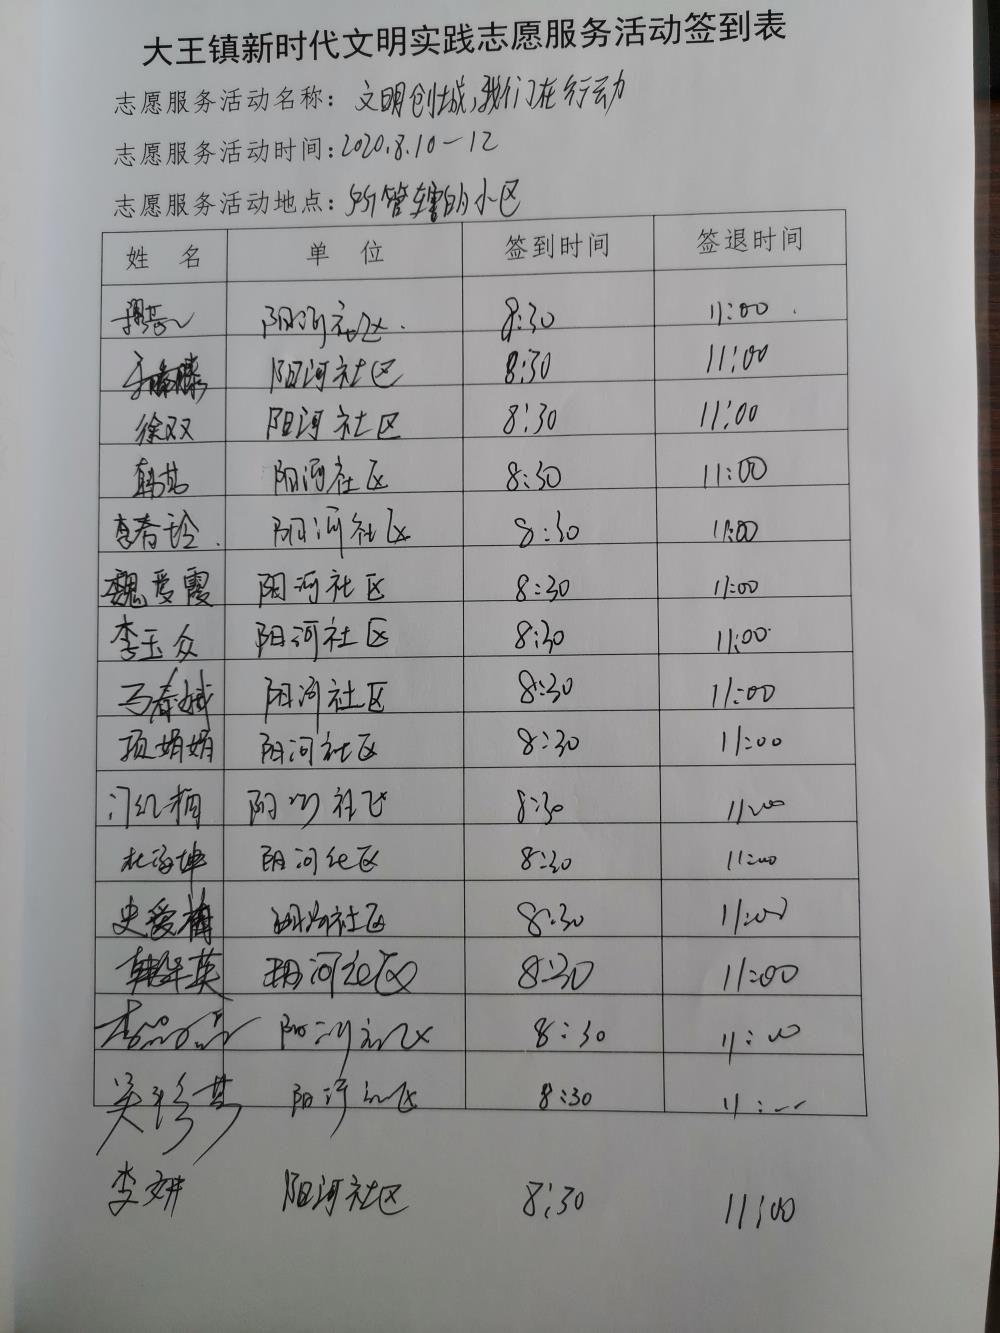 大王镇新时代文明实践志愿服务活动签到表
志愿服务活动名称：文明创城，我们在行动
志愿服务活动时间：2020.8.10—12
志愿服务活动地点：所管辖的小区
姓 名 单 位 签到时间 签退时间
阳河社区 8:30 11:00
阳河社区 8:30 11:00
徐双 阳河社区 8:30 11:00
阳河社区 8:30 11:00
李春玲 阳河社区 8:30 11:00
魏爱霞 阳河社区 8:30 11:00
李玉众 阳河社区 8:30 11:00
马春娥 阳河社区 8:30 11:00
项娟娟 阳河社区 8:30 11:00
阳河社区 8:30 11:00
阳河社区 8:30 11:00
史爱梅 阳河社区 8:30 11:00
韩华英 阳河社区 8:30 11:00
阳河社区 8:30 11:00
吴珍其 阳河社区 8:30 11:00
李妍 阳河社区 8:30 11:00